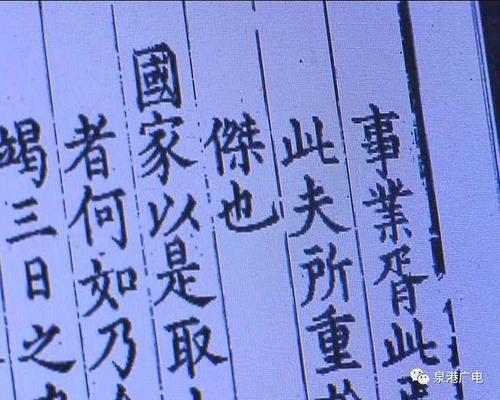 事業胥此
此夫所重
傑也
國家以是取
者何如乃
竭三日之
泉港广电